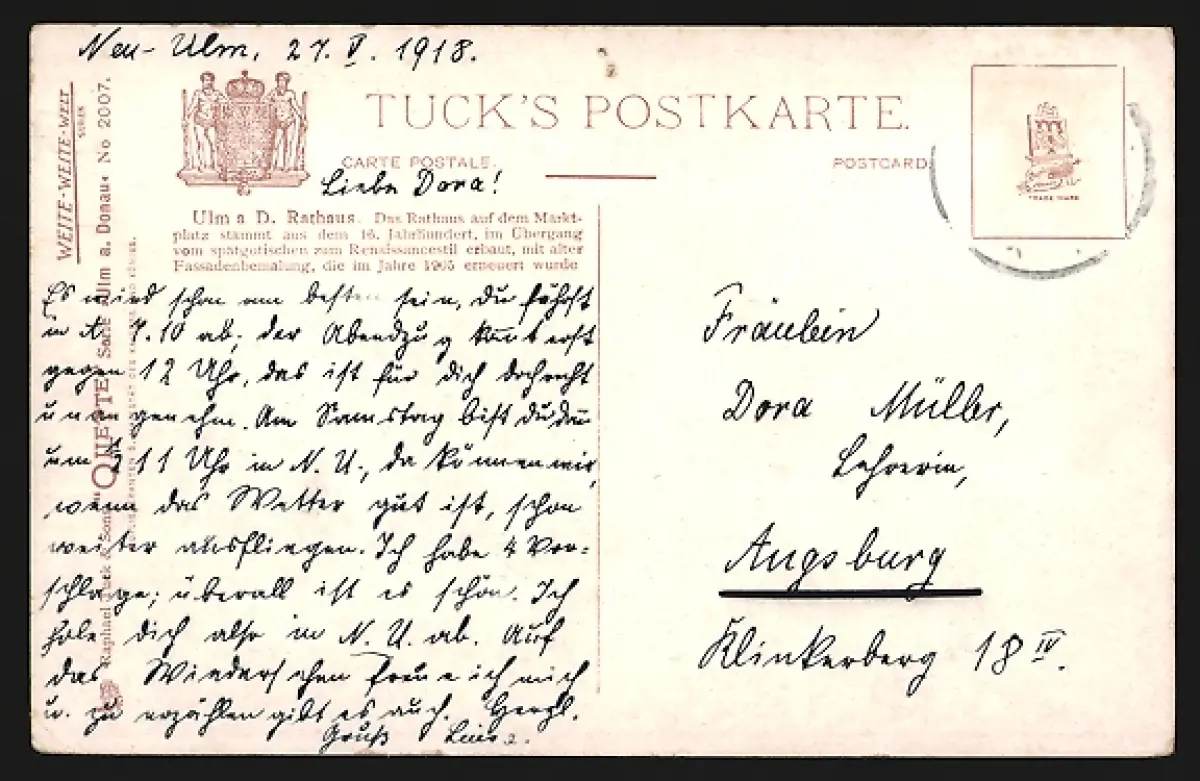 Neu-Ulm, 27. V. 1918.
TUCK'S POSTKARTE.
CARTE POSTALE.
POSTCARD
TRADE MARK
Liebe Dora!
Ulm a D. Rathaus. Das Rathaus auf dem Markt-
platz stammt aus dem 16. Jahrhundert, im Übergang
vom spätgotischen zum Renaissancestil erbaut, mit alter
Fassadenbemalung, die im Jahre 1905 erneuert wurde
Es wird schon am besten sein, du fährst
in A. 7.10 ab; der Abendzug kommt erst
gegen 12 Uhr, das ist für dich doch recht
unangenehm. Am Samstag bist du dann
um 11 Uhr in N. U., da können wir,
wenn das Wetter gut ist, schon
weiter ausfliegen. Ich habe 4 Vor-
schläge; überall ist es schön. Ich
hole dich also in N. U. ab. Auf
das Wiedersehen freue ich mich
u. zu erzählen gibt es auch. Herzl.
Gruß
Fräulein
Dora Müller,
Lehrerin,
Augsburg
Klinkerberg 18 IV.
WEITE-WEITE-WELT
SERIEN
Raphael Tuck & Sons "OILETTE" Serie "Ulm a. Donau" No 2007.